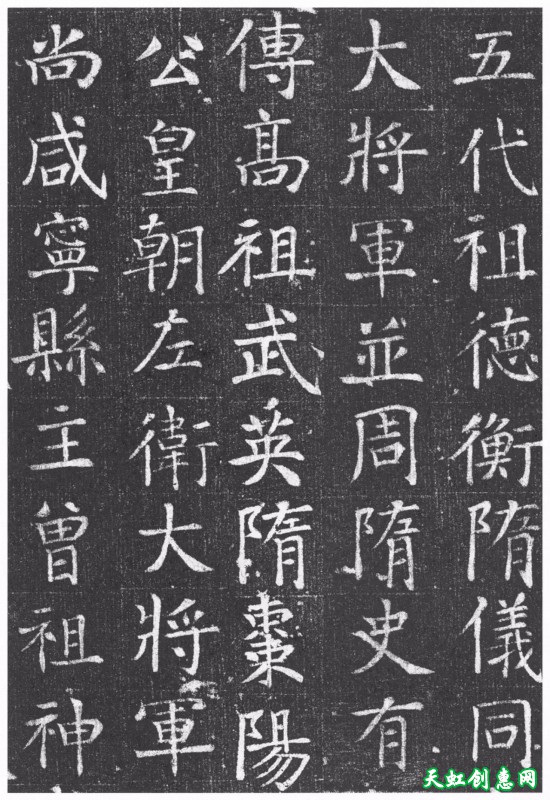 五代祖德衡隋儀同
大將軍並周隋史有
傳高祖武英隋棗陽
公皇朝左衛大將軍
尚咸寧縣主曾祖神
天虹创惠网